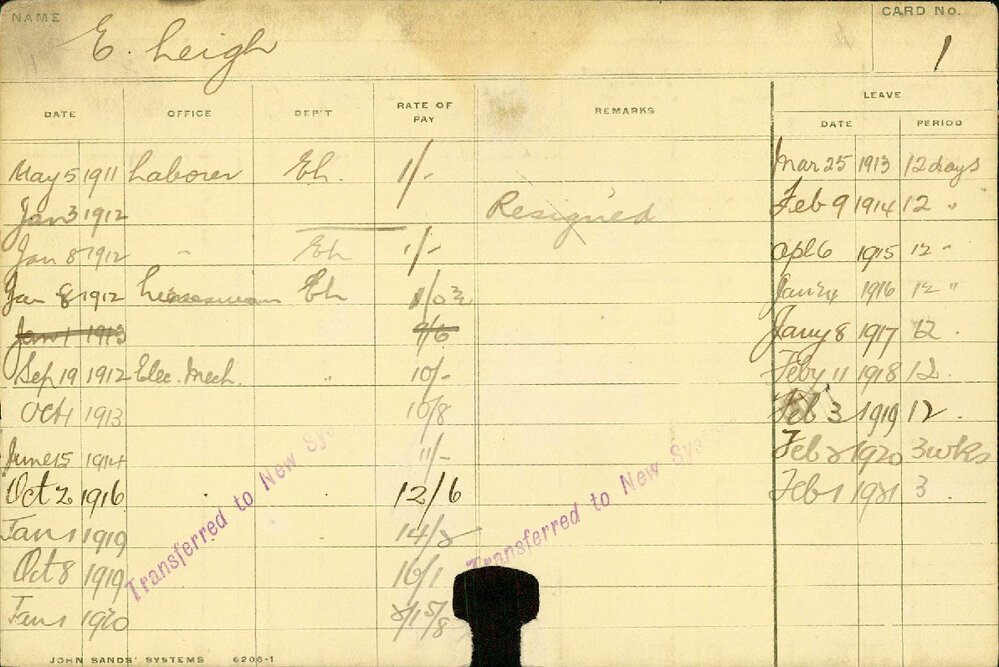 NAME
E. Leigh
CARD No.
1
DATE OFFICE DEP'T RATE OF PAY REMARKS LEAVE
DATE PERIOD
May 5 1911 Laborer El. 1/- Mar 25 1913 12 days
Jan 3 1912 Resigned Feb 9 1914 12 "
Jan 8 1912 " El 1/- Apl 6 1915 12 "
Jan 8 1912 El Jan 24 1916 12 "
Jan 1 1913 9/6 Jany 8 1917 12 .
Sep 19 1912 Elec. Mech. " 10/- Feby 11 1918 12
Oct 1 1913 10/8 Feb 3 1919 12 .
June 15 1914 11/- Feb 2 1920 3 wks
Oct 2 1916 12/6 Feb 1 1921 3
Jan 1 1919 14/2
Oct 8 1919 16/1
Jan 1 1920
Transferred to New Sys
Transferred to New Sys
JOHN SANDS' SYSTEMS 6206-1